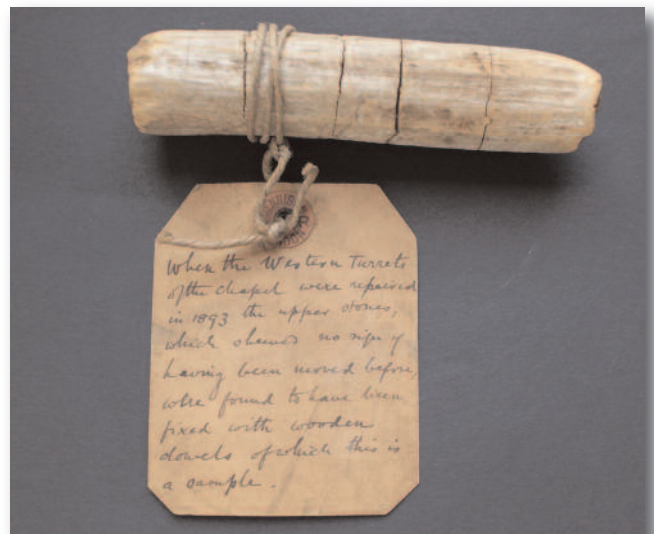 When the Western Turrets
of the chapel were repaired
in 1893 the upper stones,
which shewed no sign of
having been moved before,
were found to have been
fixed with wooden
dowels of which this is
a sample.